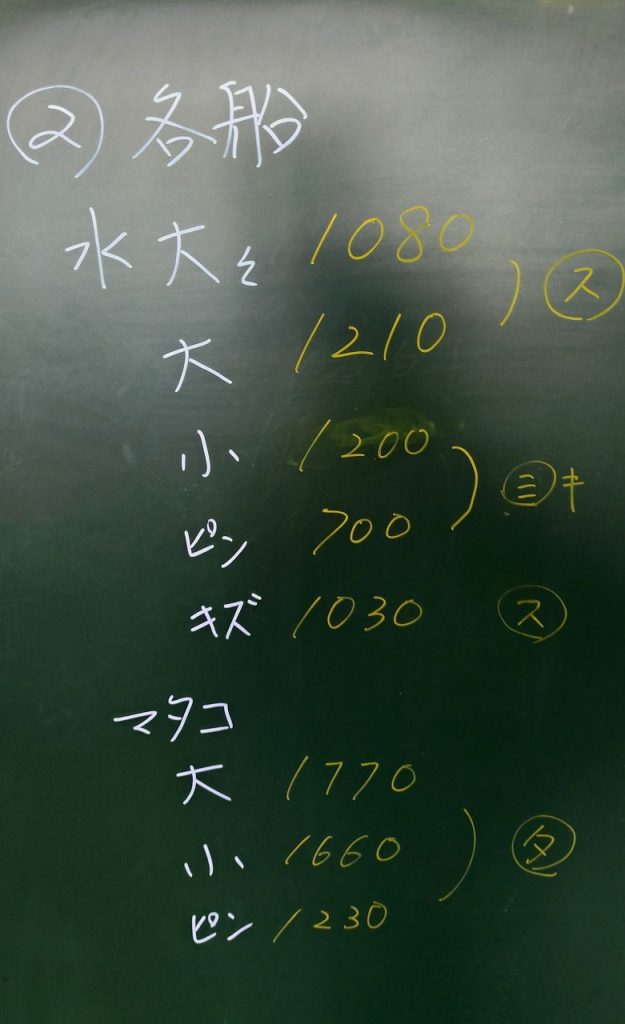 ② 各船
水大々 1080
大 1210 ㋜
小 1200
ピン 700 ㊂キ
キズ 1030 ㋜
マタコ
大 1770
小 1660 ㋟
ピン 1230